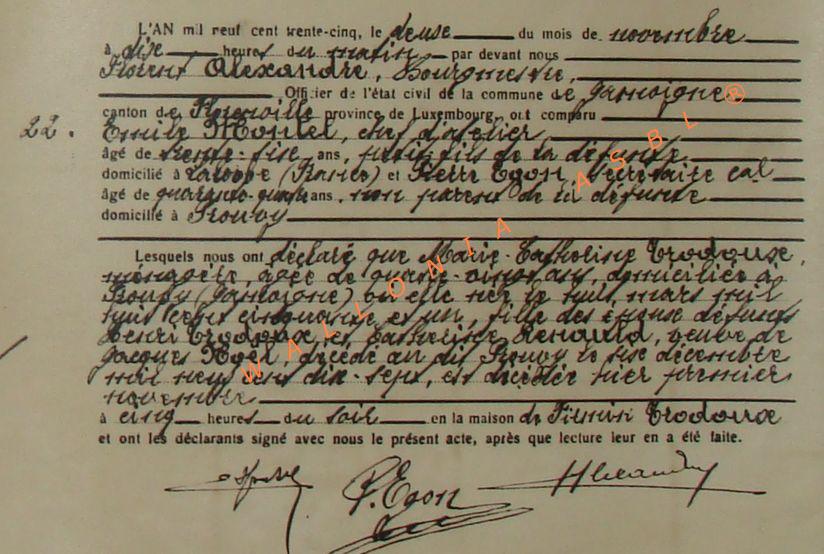 L'AN mil neuf cent trente-cinq, le deuse du mois de novembre
à dise heures du matin par devant nous
Florent Alexandre, Bourgmestre,
Officier de l'état civil de la commune de Jamoigne
canton de Florenville province de Luxembourg, ont comparu
22. Emile chef d'atelier
âgé de trente-sise ans, petit-fils de la défunte
domicilié à et Pierre Egon, secrétaire cal
âgé de quarante-quatre ans, non parent de la défunte
domicilié à Prouvy
Lesquels nous ont déclaré que Marie-Catherine Trodoux,
ménagère, âgée de quatre-vingt ans, domiciliée à
Prouvy (Jamoigne) où elle née le huit mars mil
huit cent cinquante et un, fille des époux défunts
Henri Trodoux et Catherine Renauld, veuve de
Jacques Noël décédé au dit Prouvy le sise décembre
mil neuf cent dix-sept, est décédée hier premier
novembre
à cinq heures du soir en la maison de Firmin Trodoux
et ont les déclarants signé avec nous le présent acte, après que lecture leur en a été faite.
P. Egon
WALLONIA ASBL ®